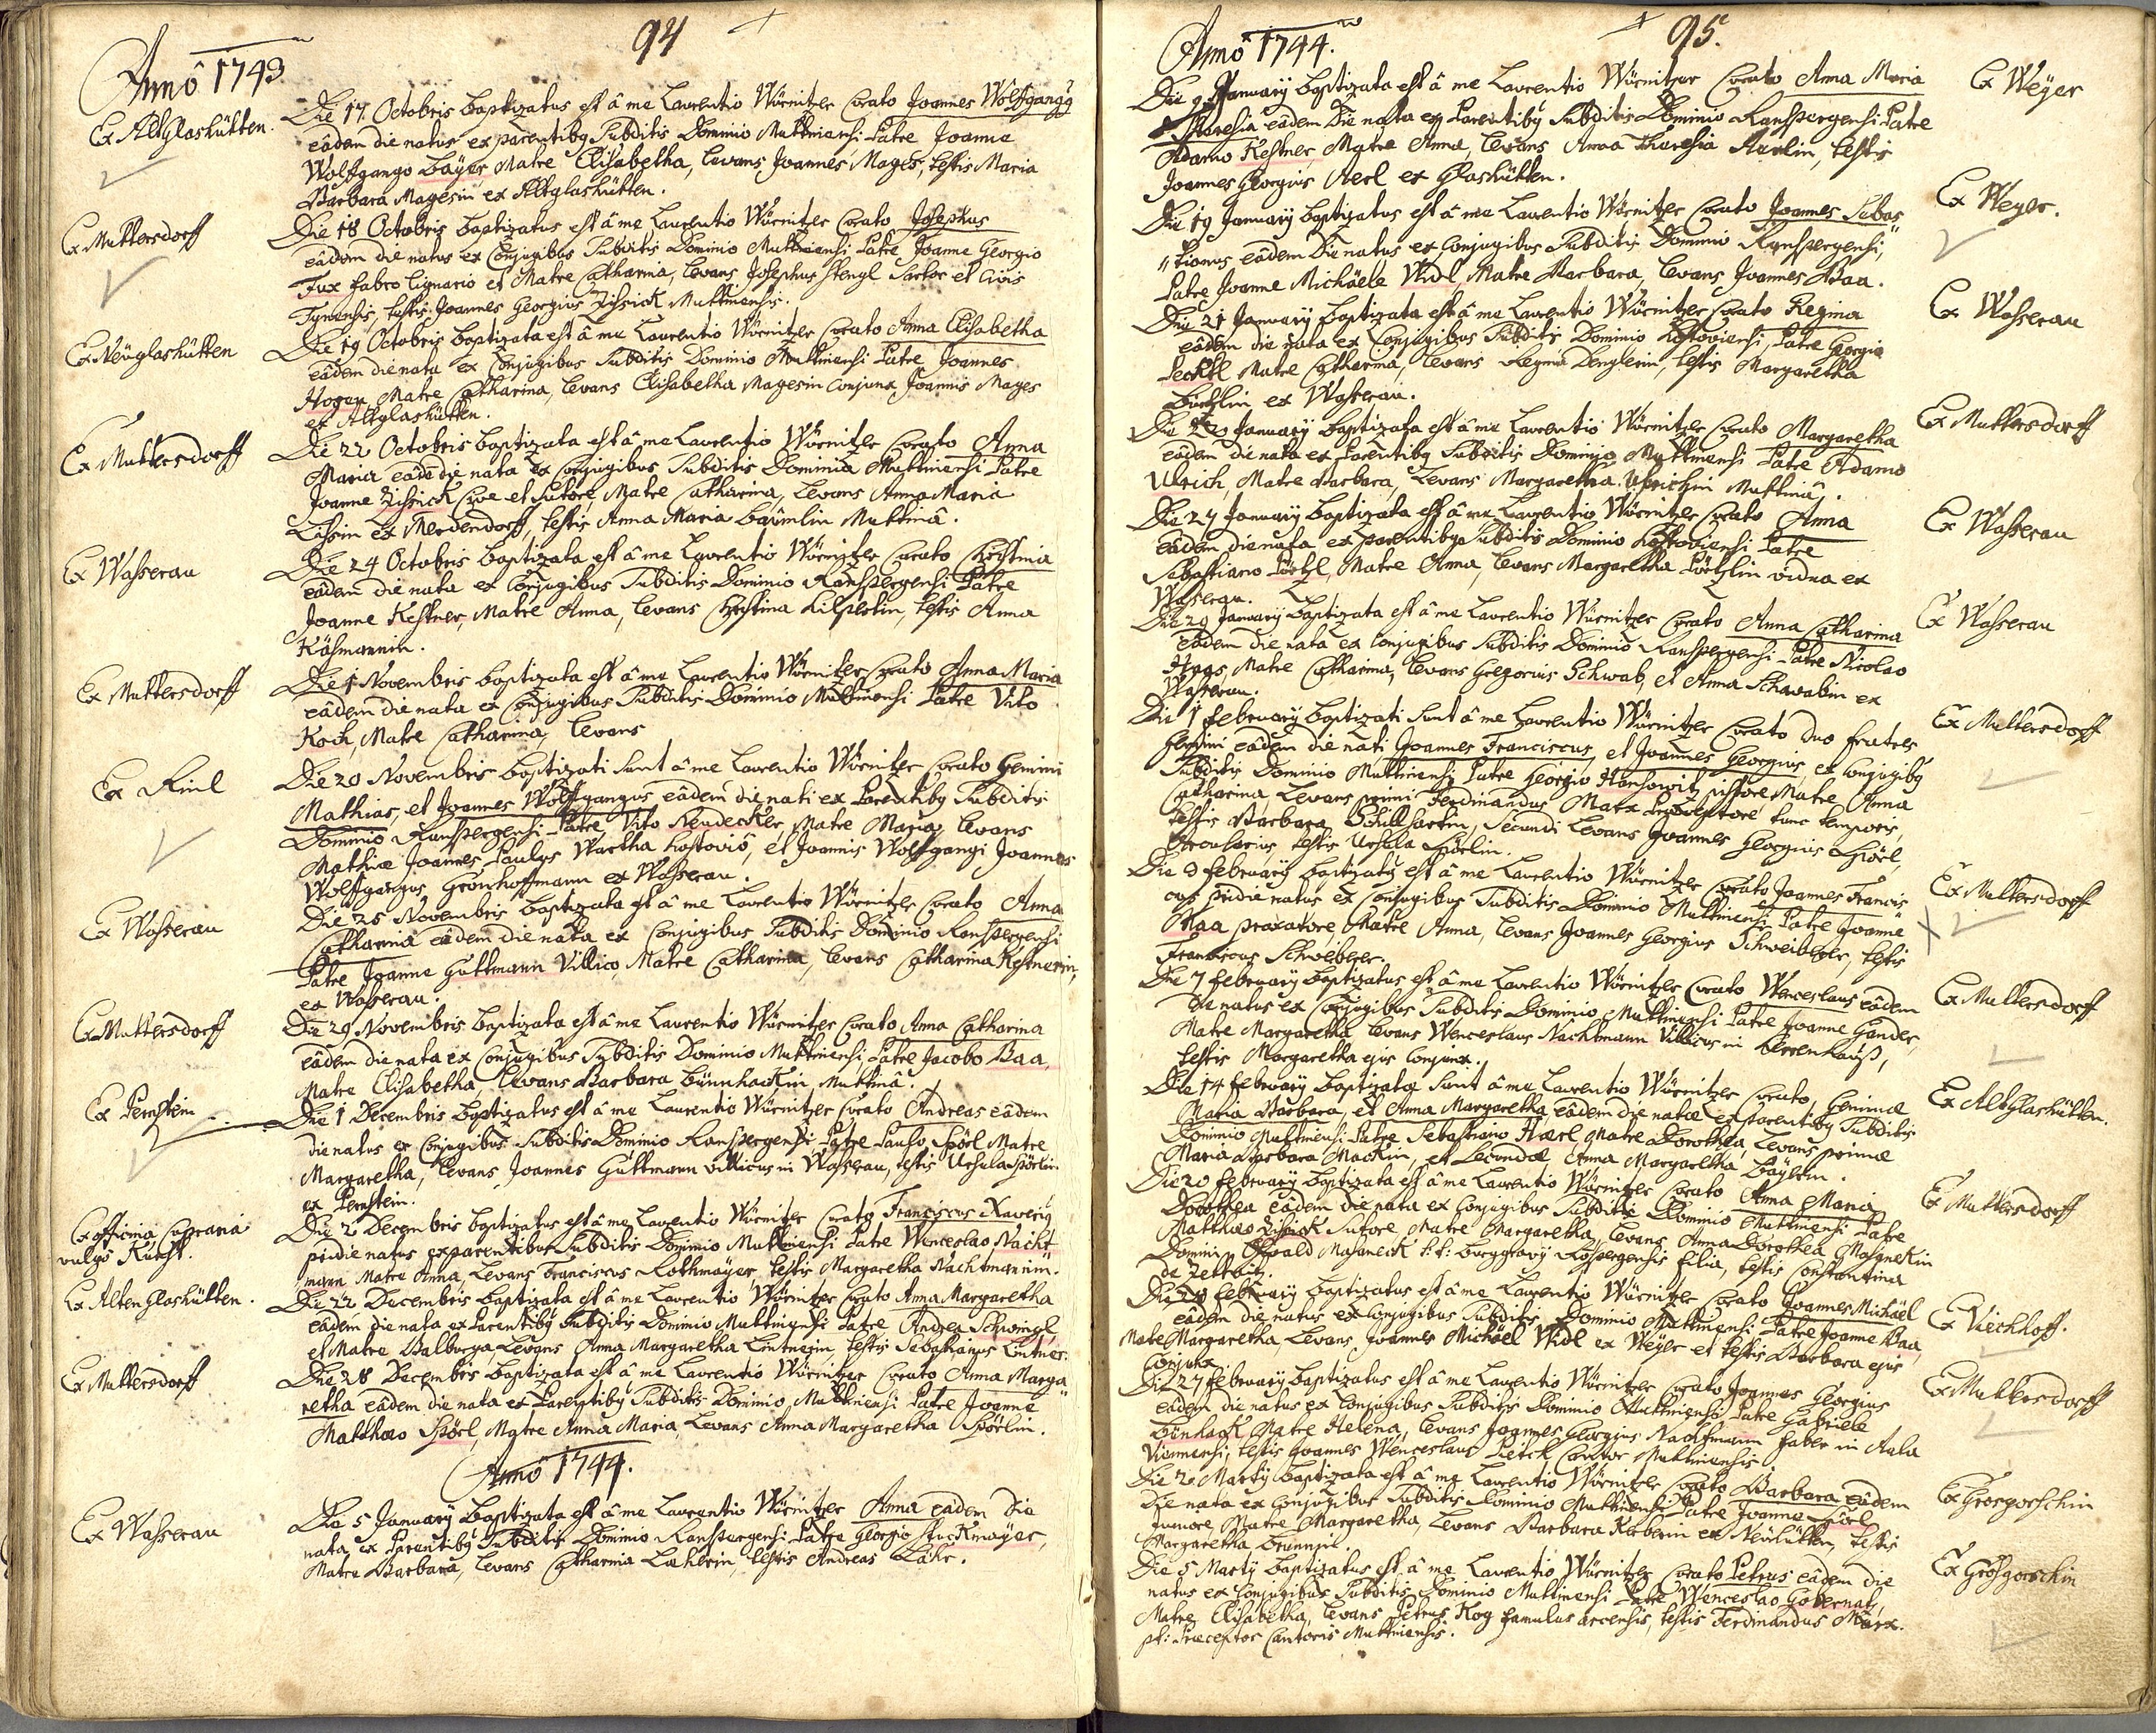 94
Anno 1743
Ex Altglashütten.
Die 17 Octobris baptizatus est â me Laurentio Würnitzer Curato Joannes Wolffgangg
eâdem die natus ex parentibg Subditis Dominio Muttniensi Patre Joanne
Wolffgango Bayer Matre Elisabetha, levans Joannes Mages, testis Maria
Barbara Magesin ex Altglashütten.
Ex Muttersdorff
Die 18 Octobris baptizatus est â me Laurentio Würnitzer Curato Josephus
eâdem die natus ex Conjugibus Subditis Dominio Muttniensi Patre Joanne Georgio
Fux fabro lignario et Matre Catharina, levans Josephus Stengl Sartor et Civis
Tynensis, testis Joannes Georgius Zischick Muttniensis.
Ex Neüglashütten
Die 19 Octobris baptizata est â me Laurentio Würnitzer Curato Anna Elisabetha
eâdem die nata ex Conjugibus Subditis Dominio Muttniensi Patre Joannes
Hogen Matre Catharina, levans Elisabetha Magesin Conjunx Joannis Mages
ex Altglashütten.
Ex Muttersdorff
Die 22 Octobris baptizata est â me Laurentio Würnitzer Curato Anna
Maria eâdē die nata ex Conjugibus Subditis Dominio Muttniensi Patre
Joanne Zischick Cive et Sutore, Matre Catharina, levans Anna Maria
Lissin ex Merdendorff, testis Anna Maria Bäumlin Muttniâ.
Ex Wasserau
Die 24 Octobris baptizata est â me Laurentio Würnitzer Curato Christina
eâdem die nata ex Conjugibus Subditis Dominio Ronspergensi Patre
Joanne Kestner, Matre Anna, levans Christina Hilpertin, testis Anna
Käsmannin.
Ex Muttersdorff
Die 1 Novembris baptizata est â me Laurentio Würnitzer Curato Anna Maria
eâdem die nata ex Conjugibus Subditis Dominio Muttniensi Patre Vito
Koch, Matre Catharina, levans
Ex Rindl
Die 20 Novembris baptizati sunt â me Laurentio Würnitzer Curato Gemini
Mathias, et Joannes Wolffgangus eâdem die nati ex Parentibg Subditis
Dominio Ronspergensi Patre Vito Neudecker Matre Maria, levans
Mathiæ Joannes Paulus Wartha Hostoviô, et Joannis Wolffgangi Joannes
Wolffgangus Gröenhoffmann ex Wasserau.
Ex Wasserau
Die 25 Novembris baptizata est â me Laurentio Würnitzer Curato Anna
Catharina eâdem die nata ex Conjugibus Subditis Dominio Ronspergensi
Patre Joanne Guttmann Villico, Matre Catharina, levans Catharina Kestnerin,
ex Wasserau.
Ex Muttersdorff
Die 29 Novembris baptizata est â me Laurentio Würnitzer Curato Anna Catharina
eâdem die nata ex Conjugibus Subditis Dominio Muttniensi, Patre Jacobo Baa,
Matre Elisabetha levans Barbara Bünnhackin Muttniâ.
Ex Pernstein
Die 1 Decembris baptizatus est â me Laurentio Würnitzer Curato Andreas eâdem
die natus ex Conjugibus Subditis Dominio Ronspergensi Patre Paulo Spörl Matre
Margaretha, levans Joannes Guttmann villicus in Wasserau, testis Ursula Spörlin
ex Pernstein.
Ex officina Cupraria
vulgo Kunst.
Die 2 Decembris baptizatus est â me Laurentio Würnitzer Curato Franciscus Xaverig
pridie natus ex parentibus Subditis Dominio Muttniensi Patre Wenceslao Nacht
mann Matre Anna, levans Franciscus Rothmayer, testis Margaretha Nachtmannin.
Ex Alten Glashütten.
Die 22 Decembris baptizata est â me Laurentio Würnitzer Curato Anna Margaretha
eâdem die nata ex Parentibg Subditis Dominio Muttniensi Patre Andrea Schwingl,
et Matre Walburga levans Anna Margaretha Lintnerin, testis Sebastianus Lintner.
Ex Muttersdorff
Die 28 Decembris baptizata est â me Laurentio Würnitzer Curato Anna Marga
retha eâdem die nata ex Parentibg Subditis Dominio Muttniensi Patre Joanne
Matthæo Spörl, Matre Anna Maria, levans Anna Margaretha Spörlin.
Anno 1744.
Ex Wasserau
Die 5 January baptizata est â me Laurentio Würnitzer Anna eâdem die
nata ex Parentibg Subditis Dominio Ronspergensi Patre Georgio Stuckmayer,
Matre Barbara, levans Catharina Lochlerin, testis Andreas Lähr.
95.
Anno 1744.
Ex Weyer
Die 9 January baptizata est â me Laurentio Würnitzer Curato Anna Maria
Theresia eâdem die nata ex Parentibg Subditis Dominio Ronspergensi Patre
Adamo Kestner, Matre Anna, levans Anna Theresia Aerlin, testis
Joannes Georgius Aerl ex Glashütten.
Ex Weyer.
Die 19 January baptizatus est â me Laurentio Würnitzer Curato Joannes Sebas
tianus eâdem die natus ex Conjugibus Subditis Dominio Ronspergensi,
Patre Joanne Michaele Widl, Matre Barbara, levans Joannes Baa.
Ex Wasserau
Die 21 January baptizata est â me Laurentio Würnitzer Curato Regina
eâdem die nata ex Conjugibus Subditis Dominio Hostoviensi, Patre Georgio
Matre Catharina, levans Regina Denglerin, testis Margaretha
ex Wasserau.
Ex Muttersdorff
Die January baptizata est â me Laurentio Würnitzer Curato Margaretha
eâdem die nata ex Parentibg Subditis Dominio Muttniensi Patre Adamo
Ulrich, Matre Barbara, levans Margaretha Ulrichin Muttniâ.
Ex Wasserau
Die 27 January baptizata est â me Laurentio Würnitzer Curato Anna
eâdem die nata ex parentibg Subditis Dominio Hostoviensi Patre
Sebastiano Pörtzl, Matre Anna, levans Margaretha Pörtzlin vidua ex
Wasserau.
Ex Wasserau
Die 29 January baptizata est â me Laurentio Würnitzer Curato Anna Catharina
eâdem die nata ex Conjugibus Subditis Dominio Ronspergensi Patre Nicolao
Haas, Matre Catharina, levans Gregorius Schwab, et Anna Schwabin ex
Wasserau.
Ex Muttersdorff
Die 1 february baptizati sunt â me Laurentio Würnitzer Curato duo fratres
Gemini eâdem die nati Joannes Franciscus, et Joannes Georgius, ex Conjugibg
Subditis Dominio Muttniensi Patre Georgio Hanschowitz pistore, Matre Anna
Catharina, levans primi Ferdinandus Marx Præceptore tunc temporis,
testis Barbara, secundi levans Joannes Georgius Spörl,
testis Ursula Spörlin.
Ex Muttersdorff
Die 3 february baptizatg est â me Laurentio Würnitzer Curato Joannes Francis
cus pridie natus ex Conjugibus Subditis Dominio Muttniensi Patre Joanne
Baa praxatore, Matre Anna, levans Joannes Georgius Schweiberer, testis
Franciscus Schweiberer.
Ex Muttersdorff
Die 7 february baptizatus est â me Laurentio Würnitzer Curato Wenceslaus eâdem
die natus ex Conjugibus Subditis Dominio Muttniensi Patre Joanne Gander,
Matre Margaretha, levans Wenceslaus Nachtmann Villicus in Berrenhauß,
testis Margaretha ejus Conjunx.
Ex Altglashütten.
Die 14 february baptizatæ sunt â me Laurentio Würnitzer Curato, Geminæ
Maria Barbara, et Anna Margaretha, eâdem die natæ ex parentibg Subditis
Dominio Muttniensi Patre Sebastiano Haerl, Matre Dorothea, levans primæ
Maria Barbara Mackin, et secundæ Anna Margaretha Bayerin.
Ex Muttersdorff
Die 20 february baptizata est â me Laurentio Würnitzer Curato Anna Maria
Dorothea eâdem die nata ex Conjugibus Subditis Dominio Muttniensi Patre
Matthæo Zischick Sutore, Matre Margaretha, levans Anna Dorothea Massanekin
Domini Oswald Massaneck Burggravy Ronspergensis filia, testis Constantina
de
Ex Viechhoff.
Die february baptizatus est â me Laurentio Würnitzer Curato Joannes Michäel
eâdem die natus ex Conjugibus Subditis Dominio Muttniensi Patre Joanne Baa,
Matre Margaretha, levans Joannes Michäel Widl ex Weyer et testis Barbara ejus
Conjunx.
Ex Muttersdorff
Die 27 february baptizatus est â me Laurentio Würnitzer Curato Joannes Georgius
eâdem die natus ex Conjugibus Subditis Dominio Muttniensi Patre Gabriele
Bünhack Matre Helena, levans Joannes Georgius Nachtmann faber in Aula
Viennensi, testis Joannes Wenceslaus Cantor Muttniensis.
Ex Grosgorschin
Die 2 Marty baptizata est â me Laurentio Würnitzer Curato Barbara eâdem
die nata ex Conjugibus Subditis Dominio Muttniensi Patre Joanne Spörl
Juniore, Matre Margaretha, levans Barbara Körberin ex Neühütten, testis
Margaretha
Ex Grosgorschin
Die 5 Marty baptizatus est â me Laurentio Würnitzer Curato Petrus eâdem die
natus ex Conjugibus Subditis Dominio Muttniensi Patre Wenceslao Gobernatz,
Matre Elisabetha, levans Petrus Kog famulus arcensis, testis Ferdinandus Marx
pt: Præceptor Cantoris Muttniensis.